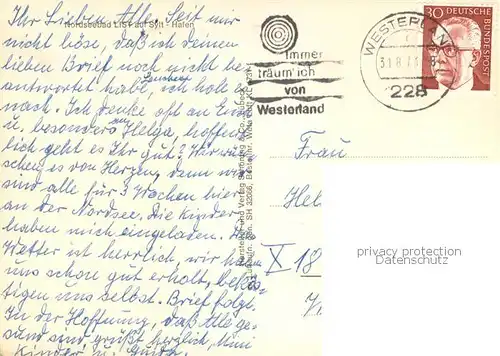 Ihr Lieben Alle, Seit mir
Nordseebad LIST auf Sylt - Hafen
nicht böse, daß ich deinen
lieben Brief noch nicht be-
antwortet habe, ich hole es
nach. Ich denke oft an Euch
u. besonders an Helga, hoffent
lich geht es Ihr gut? Wir wün
schen es von Herzen, denn wir
sind alle für 3 Wochen hier
an der Nordsee. Die Kinder
haben mich eingeladen. Das
Wetter ist herrlich, wir haben
uns schon gut erholt, beköst
tigen uns selbst. Brief folgt.
In der Hoffnung, daß Alle ge-
sund sind grüßt herzlich, Mimi
Kinder u.
Immer
träum' ich
von
Westerland
WESTERLAND
228
30 DEUTSCHE
BUNDESPOST
Frau
Hel
X 18
privacy protection
Datenschutz